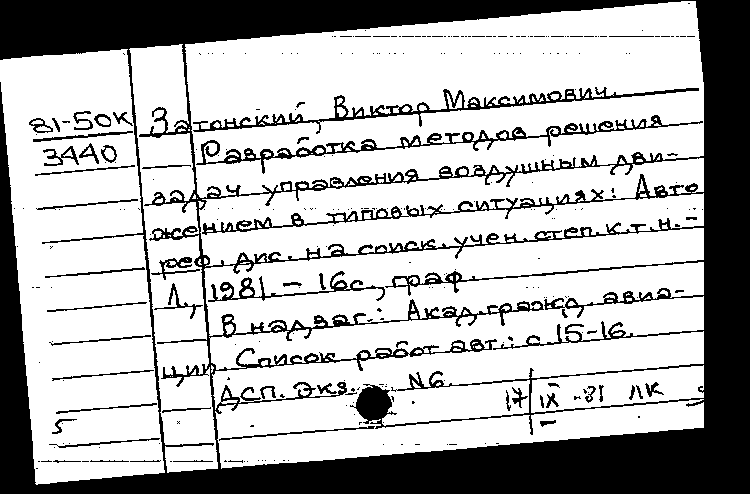 81-50к Затонский, Виктор Максимович.
3440 Разработка методов решения
задач управления воздушным дви-
жением в типовых ситуациях: Авто
реф. дис. на соиск. учен. степ. к.т.н.-
Л., 1981. - 16с., граф.
В надзаг.: Акад. гражд. авиа-
ции. Список работ авт.: с. 15-16.
ДСП. Экз. N6.
17/IX -81 ЛК
5